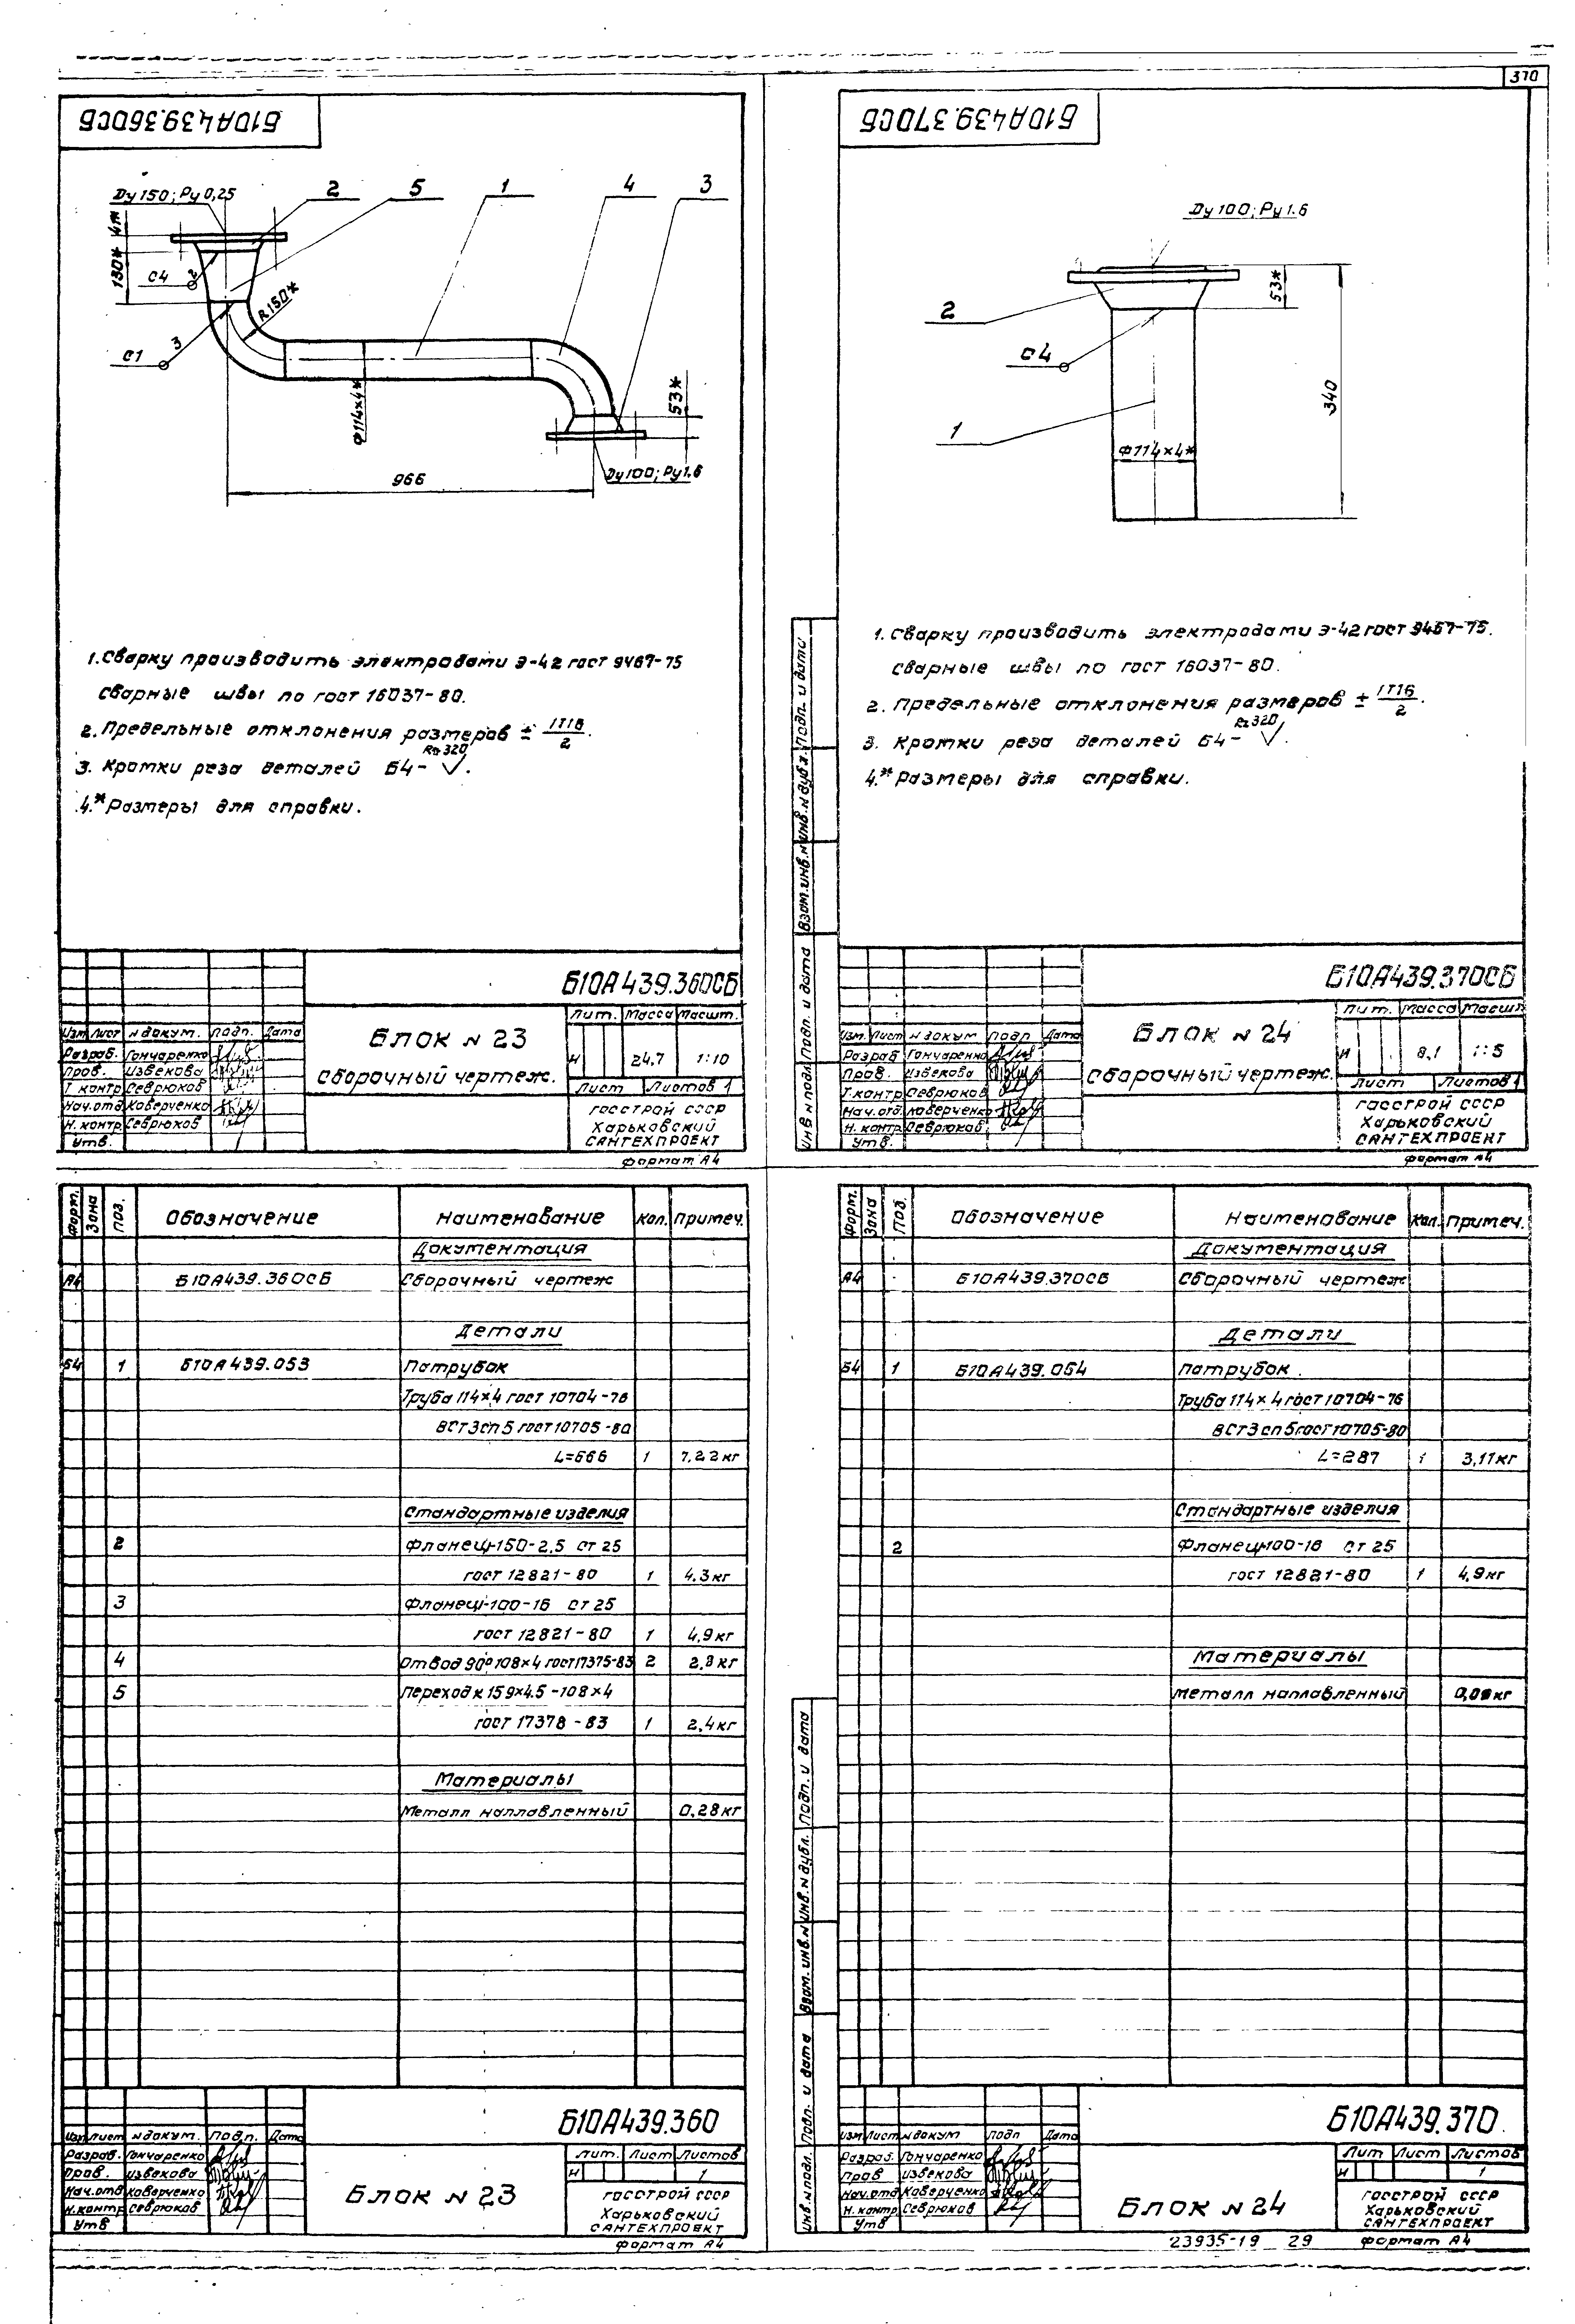 370
Б10А439.360СБ
Dу150; Ру0,25
2
5
1
4
3
4*
130*
С4
2
R150*
С1
3
Ф114×4*
53*
966
Dу100; Ру1.6
1. Сварку производить электродами Э-42 гост 9467-75
сварные швы по гост 16037-80.
2. Предельные отклонения размеров ± IT16/2.
3. Кромки реза деталей Б4- Rz320 √.
4.* Размеры для справки.
Б10А439.360СБ
Изм Лист N докум. Подп. Дата
Разраб. Гончаренко
Пров. Извекова
Т. контр Севрюков
Нач.отд Каверченко
Н. контр Севрюков
Утв.
Блок N 23
Сборочный чертеж.
Лит. Масса Масшт.
И 24,7 1:10
Лист Листов 1
Госстрой СССР
Харьковский
САНТЕХПРОЕКТ
Формат А4
Б10А439.370СБ
Dу100; Ру1.6
53*
2
С4
340
1
Ф114×4*
1. Сварку производить электродами Э-42 гост 9467-75.
сварные швы по гост 16037-80.
2. Предельные отклонения размеров ± IT16/2.
3. Кромки реза деталей Б4- Rz320 √.
4.* Размеры для справки.
Инв N подл Подп. и дата Взам.инв.N Инв.N дубл. Подп. и дата
Б10А439.370СБ
Изм. Лист N докум Подп Дата
Разраб Гончаренко
Пров. Извекова
Т.контр Севрюков
Нач.отд Каверченко
Н. контр Севрюков
Утв.
Блок N 24
Сборочный чертеж.
Лит. Масса Масшт
И 8,1 1:5
Лист Листов 1
Госстрой СССР
Харьковский
САНТЕХПРОЕКТ
Формат А4
Форм. Зона Поз. Обозначение Наименование Кол. Примеч.
Документация
А4 Б10А439.360СБ Сборочный чертеж
Детали
Б4 1 Б10А439.053 Патрубок
Труба 114×4 гост 10704-76
ВСт3сп5 гост 10705-80
L=666 1 7,22кг
Стандартные изделия
2 Фланец 1-150-2,5 ст 25
гост 12821-80 1 4.3кг
3 Фланец 1-100-16 ст 25
гост 12821-80 1 4,9кг
4 Отвод 90° 108×4 гост 17375-83 2 2,8кг
5 Переход к 159×4.5-108×4
гост 17378-83 1 2,4кг
Материалы
Металл наплавленный 0,28кг
Б10А439.360
Изм Лист N докум. Подп. Дата
Разраб. Гончаренко
Пров. Извекова
Нач.отд Каверченко
Н.контр Севрюков
Утв
Блок N 23
Лит. Лист Листов
И 1
Госстрой СССР
Харьковский
САНТЕХПРОЕКТ
Формат А4
Форм. Зона Поз. Обозначение Наименование Кол. Примеч.
Документация
А4 Б10А439.370СБ Сборочный чертеж
Детали
Б4 1 Б10А439.054 Патрубок.
Труба 114×4 гост 10704-76
ВСт3сп5 гост 10705-80
L=287 1 3,11кг
Стандартные изделия
2 Фланец 1-100-16 ст 25
гост 12821-80 1 4,9кг
Материалы
Металл наплавленный
Инв.N подл. Подп. и дата Взам.инв.N Инв.N дубл. Подп. и дата
Б10А439.370
Изм Лист N докум Подп Дата
Разраб. Гончаренко
Пров Извекова
Нач.отд Каверченко
Н.контр Севрюков
Утв
Блок N 24
Лит Лист Листов
И 1
Госстрой СССР
Харьковский
САНТЕХПРОЕКТ
23935-19 29 Формат А4